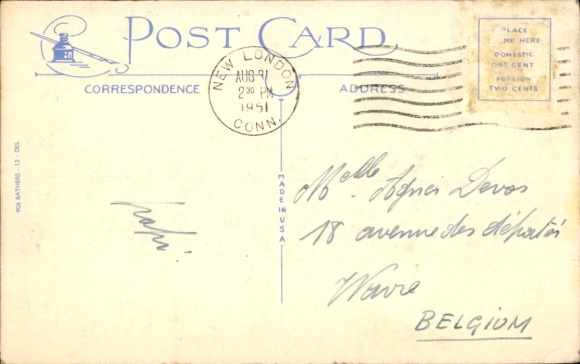 POST CARD
PLACE
ME HERE
DOMESTIC
ONE CENT
FOREIGN
TWO CENTS
NEW LONDON
AUG 31
2 30 PM
1951
CONN.
CORRESPONDENCE
ADDRESS
906 BATHERS - 12 - DES.
MADE IN U.S.A.
Melle Agnès Devos
18 avenue des déportés
Wavre
BELGIUM